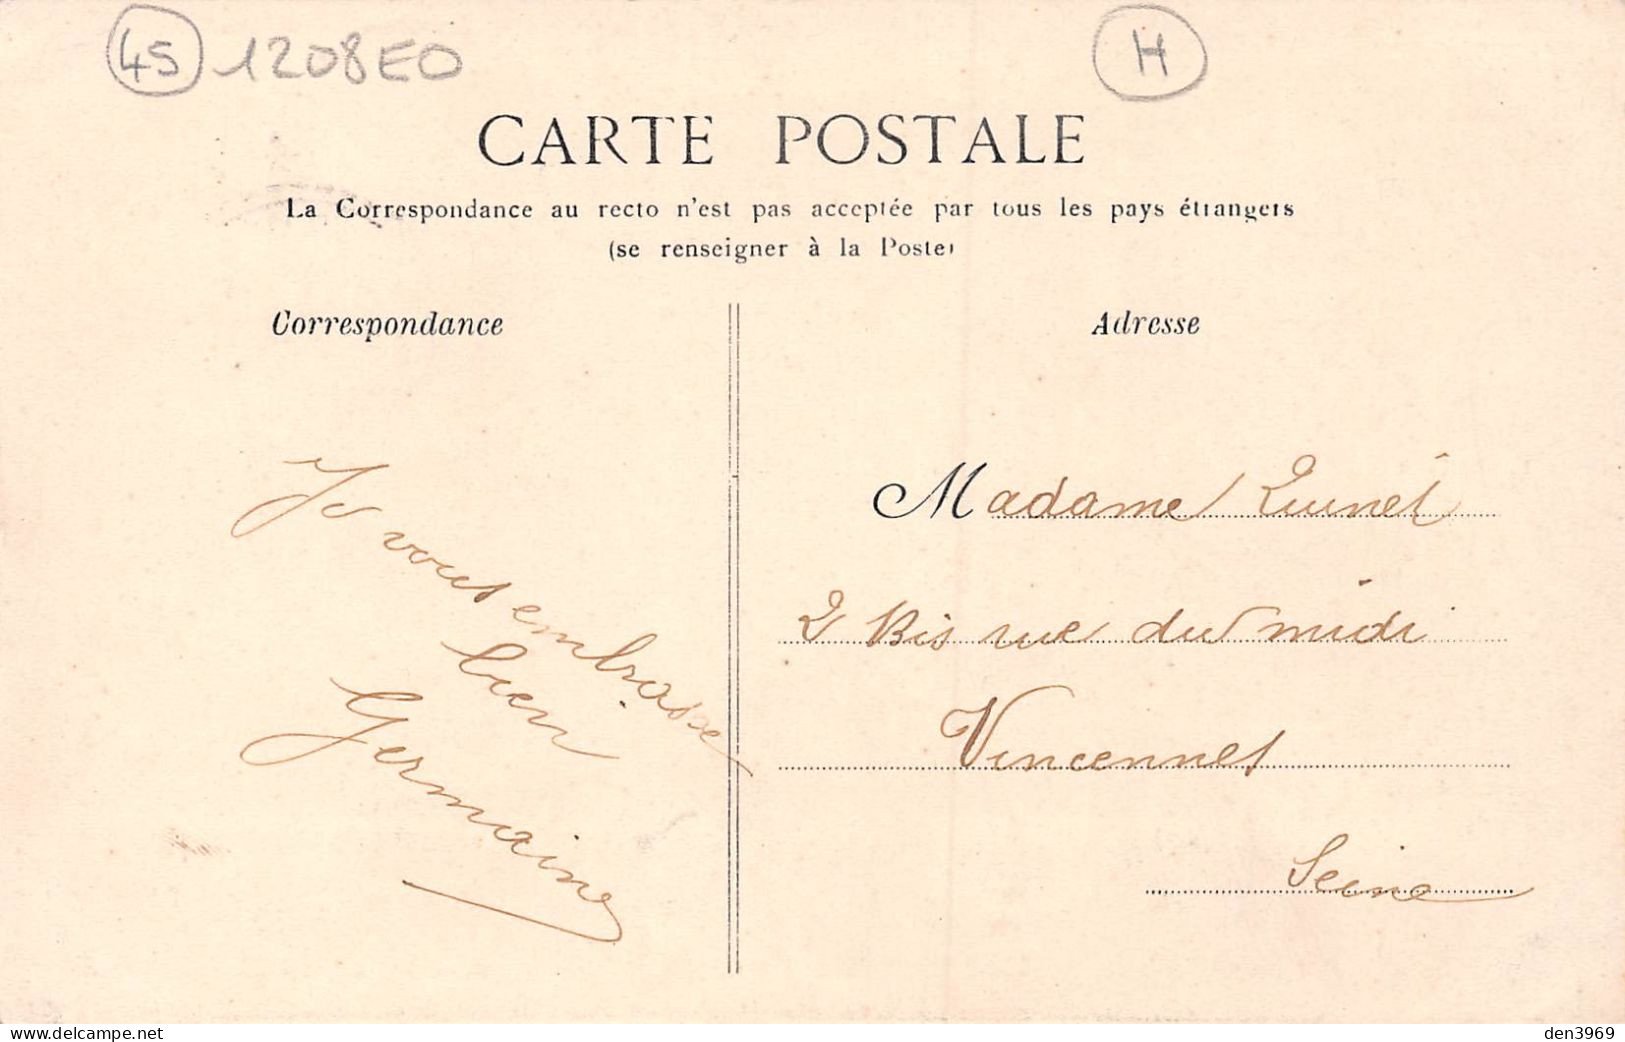 45 1208EO H
CARTE POSTALE
La Correspondance au recto n'est pas acceptée par tous les pays étrangers
(se renseigner à la Poste)
Correspondance
Adresse
Je vous embrasse
bien
Germaine
Madame
2 Bis rue du midi
Vincennes
Seine
www.delcampe.net
den3969